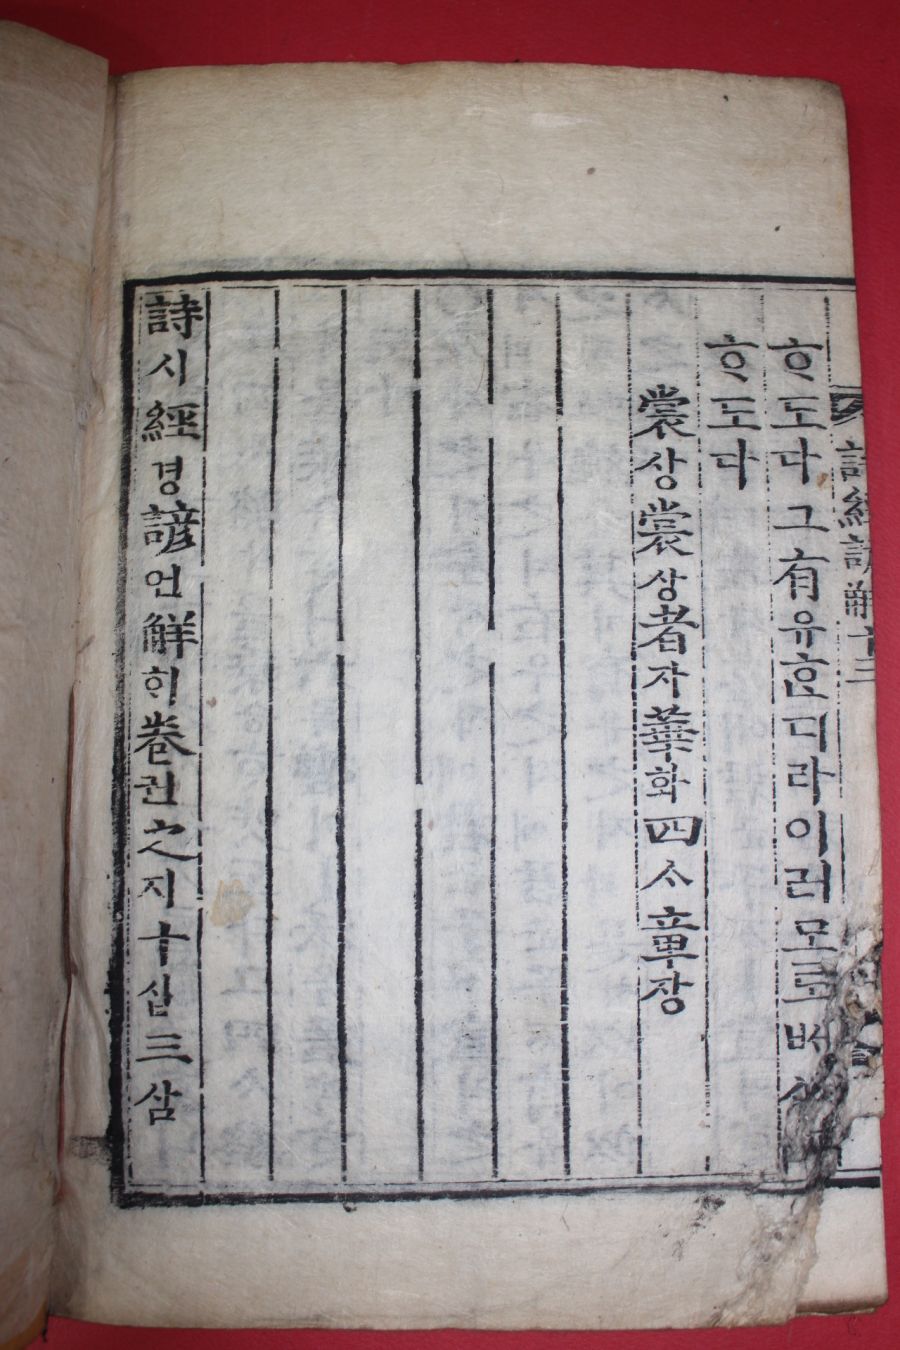 詩經諺解十三
ᄒᆞ도다그有유ᄒᆞᆫ디라이러모로
ᄒᆞ도다
裳상裳상者자華화四ᄉᆞ章장
詩시經경諺언觧ᄒᆡ卷권之지十십三삼